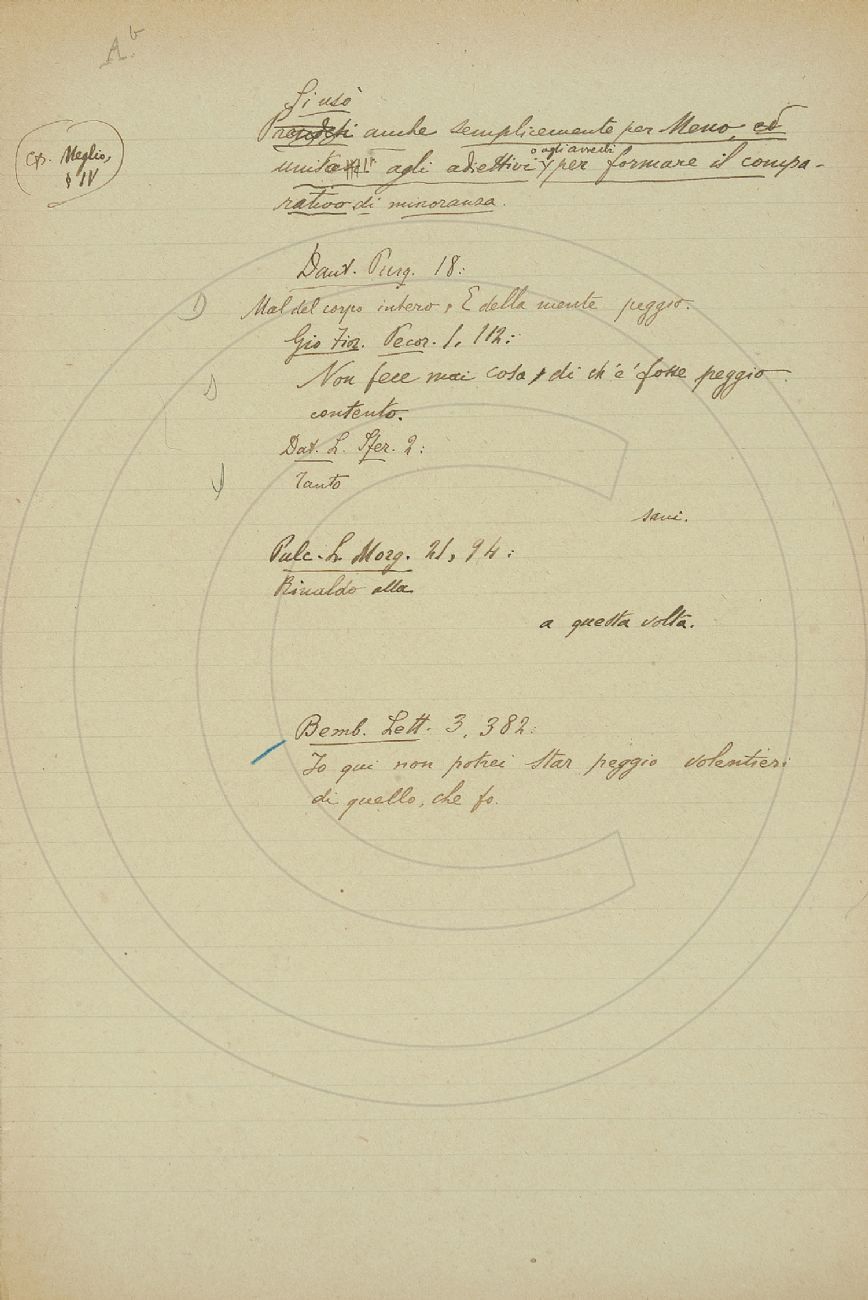 A.b
Cfr. Meglio,
§ IV
Si usò
Prendesi anche semplicemente per Meno, ed
unita agli adiettivi o agli avverbi per formare il compa-
rativo di minoranza.
Dant. Purg. 18:
Mal del corpo intero, E della mente peggio.
Gio Fior. Pecor. 1, 112:
Non fece mai cosa, di ch'e' fosse peggio
contento.
Dat. L. Sfer. 2:
Tanto
sani.
Pulc. L. Morg. 21, 94:
Rinaldo alla
a questa volta.
Bemb. Lett. 3, 382:
Io qui non potrei star peggio volentieri
di quello, che fo.